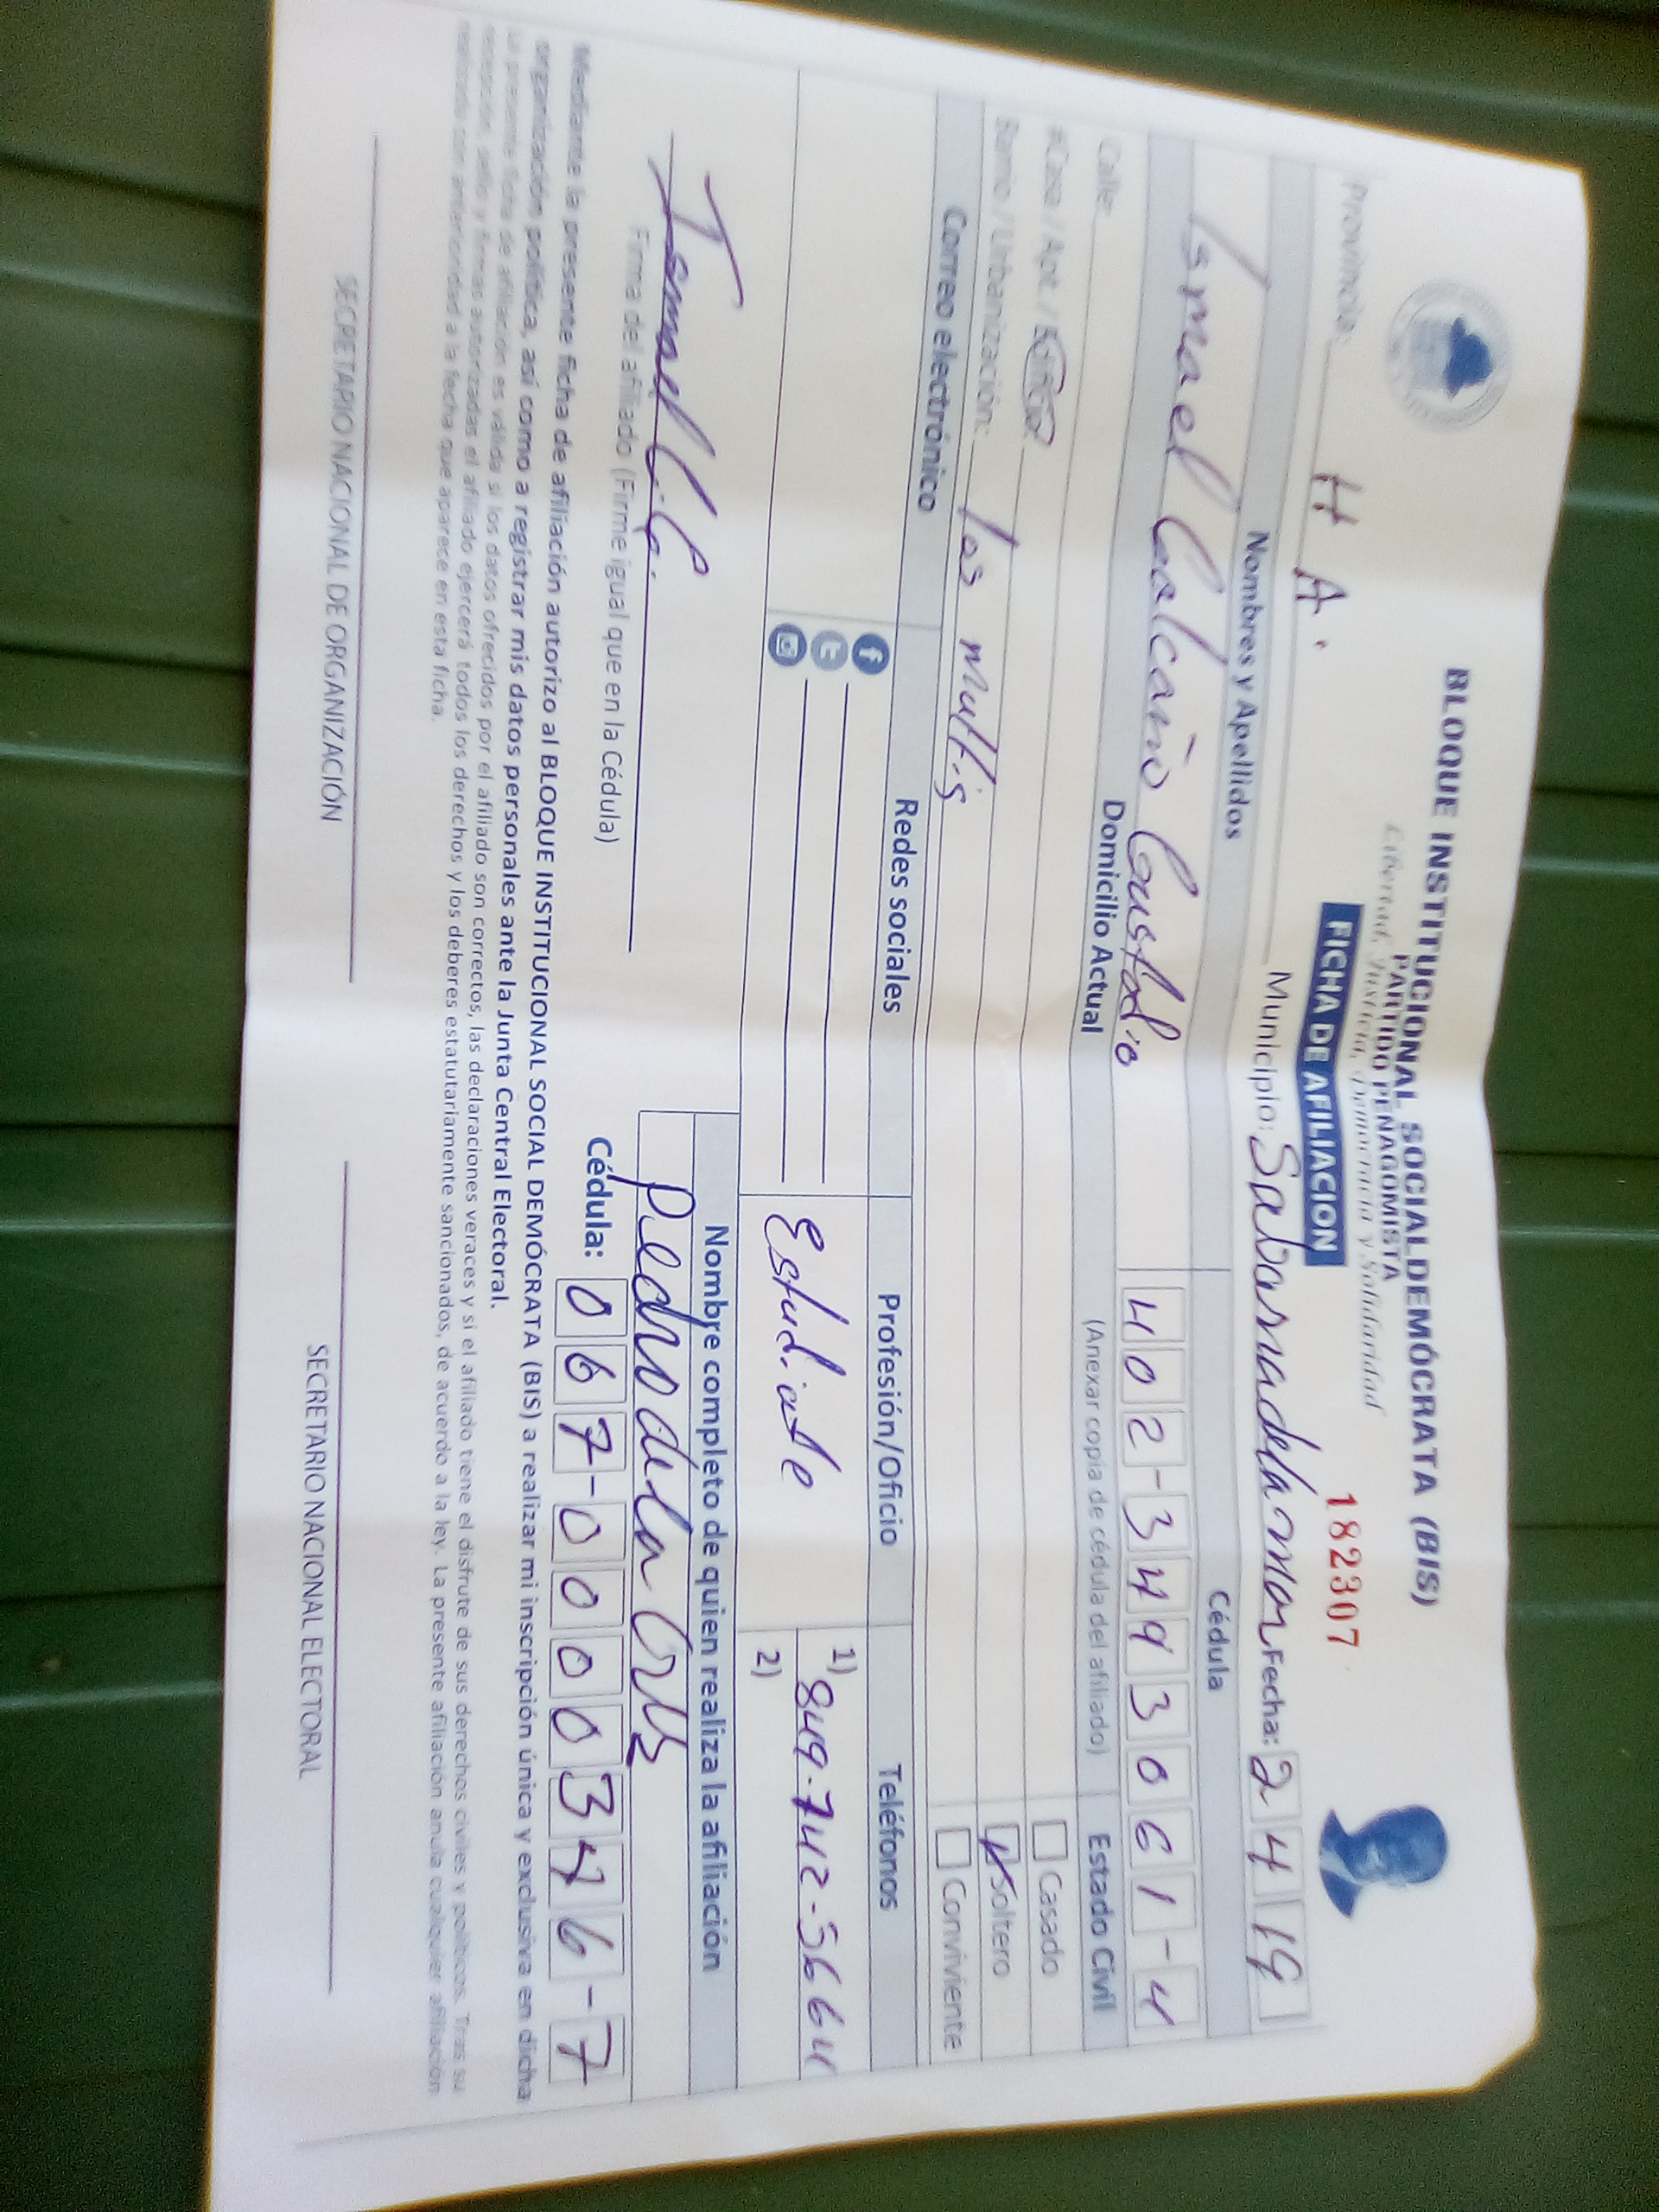 BLOQUE INSTITUCIONAL SOCIALDEMÓCRATA (BIS)
PARTIDO PEÑAGOMISTA
Libertad, Justicia, Democracia y Solidaridad
FICHA DE AFILIACION
182307
Provincia: H A. Municipio: Sabana de la mar Fecha: 2 4 19
Nombres y Apellidos Cédula
Ismael Calcaño Custodio 402-3493061-4
Domicilio Actual (Anexar copia de cédula del afiliado) Estado Civil
Calle:
#Casa / Apt. / Edificio Casado
Barrio / Urbanización: los multis Soltero
Conviviente
Correo electrónico Redes sociales Profesión/Oficio Teléfonos
Estudiate 1) 849-742-5664
2)
Nombre completo de quien realiza la afiliación
Ismael C.C. Pedro de la
Firma del afiliado (Firme igual que en la Cédula) Cédula: 067-0000346-7
Mediante la presente ficha de afiliación autorizo al BLOQUE INSTITUCIONAL SOCIAL DEMÓCRATA (BIS) a realizar mi inscripción única y exclusiva en dicha
organización política, así como a registrar mis datos personales ante la Junta Central Electoral.
La presente ficha de afiliación es válida si los datos ofrecidos por el afiliado son correctos, las declaraciones veraces y si el afiliado tiene el disfrute de sus derechos civiles y políticos. Tras su
recepción, sello y firmas autorizadas el afiliado ejercerá todos los derechos y los deberes estatutariamente sancionados, de acuerdo a la ley. La presente afiliación anula cualquier afiliación
realizada con anterioridad a la fecha que aparece en esta ficha.
SECRETARIO NACIONAL DE ORGANIZACIÓN SECRETARIO NACIONAL ELECTORAL